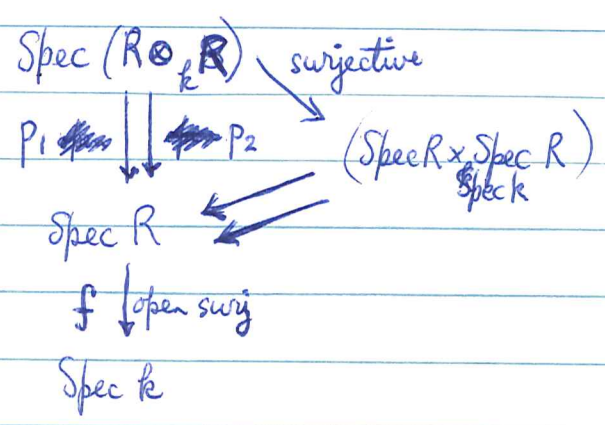 Spec (R ⊗ₖ R) surjective
p₁ p₂ (Spec R × Spec R)
Spec k
Spec R
f open surj
Spec k